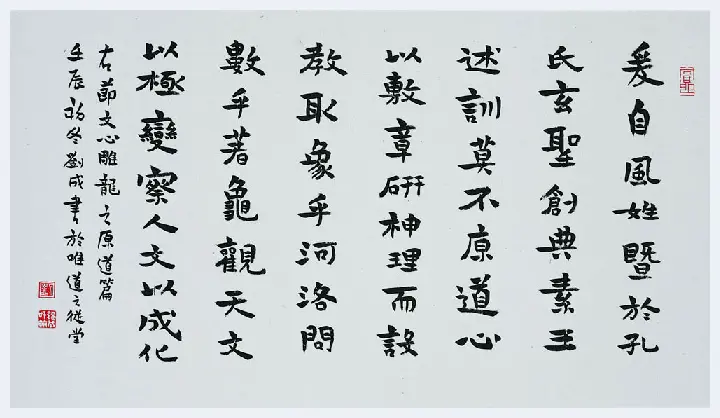 爰自風姓暨於孔
氏玄聖創典素王
述訓莫不原道心
以敷章研神理而設
教取象乎河洛問
數乎蓍龜觀天文
以極變察人文以成化
右節文心雕龍之原道篇
壬辰初冬劉成書於唯道之從堂